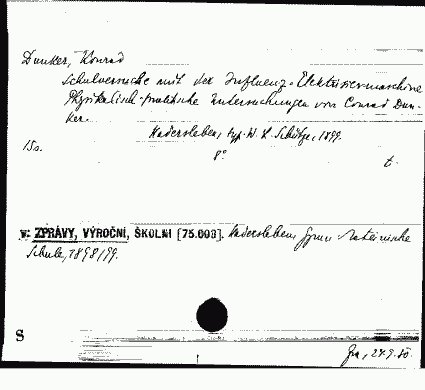 Dunker, Konrad
Schulversuche mit der Influenz-Elektrisiermaschine
Physikalisch-praktische Untersuchungen von Conrad Dun-
ker.
Hadersleben, typ. W. L. Schütze, 1899.
15s. 8° t.
v: ZPRÁVY, VÝROČNÍ, ŠKOLNÍ [75.003]. Hadersleben, Gymn. Lateinische
Schule, 1898/99.
S
24.9.